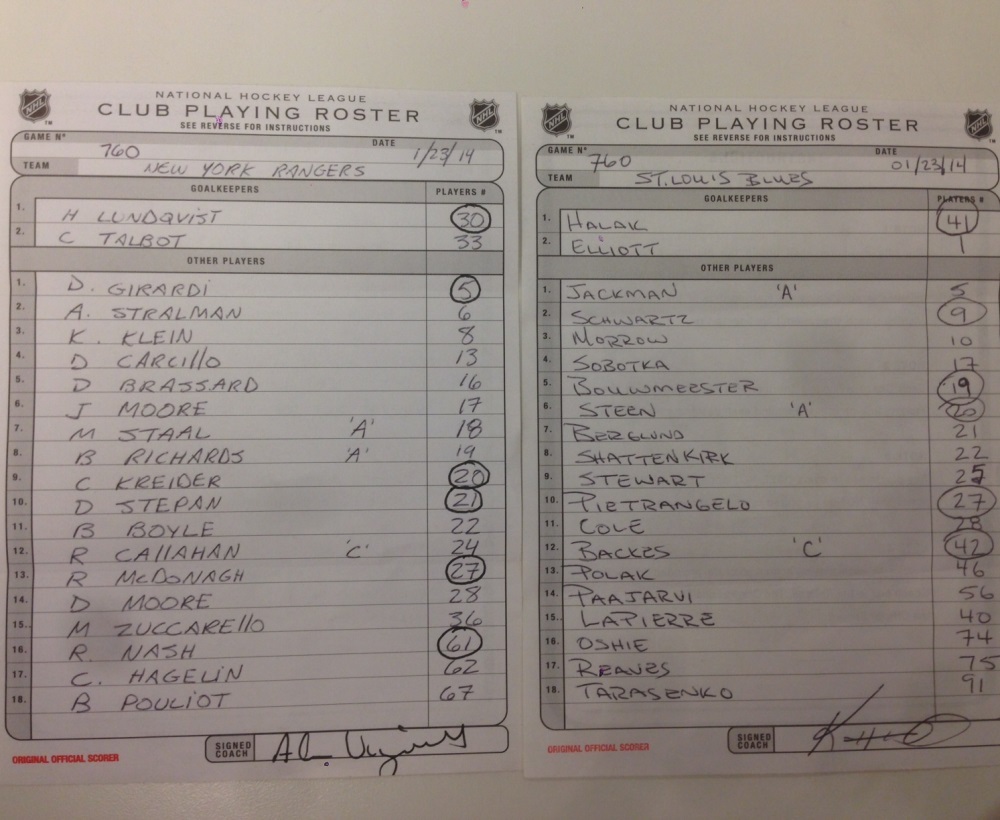 NATIONAL HOCKEY LEAGUE
CLUB PLAYING ROSTER
SEE REVERSE FOR INSTRUCTIONS
GAME Nº 760 DATE 1/23/14
TEAM NEW YORK RANGERS
GOALKEEPERS PLAYERS #
1. H LUNDQVIST 30
2. C TALBOT 33
OTHER PLAYERS
1. D. GIRARDI 5
2. A. STRALMAN 6
3. K. KLEIN 8
4. D CARCILLO 13
5. D BRASSARD 16
6. J MOORE 17
7. M STAAL 'A' 18
8. B RICHARDS 'A' 19
9. C KREIDER 20
10. D STEPAN 21
11. B BOYLE 22
12. R CALLAHAN 'C' 24
13. R McDONAGH 27
14. D MOORE 28
15. M ZUCCARELLO 36
16. R. NASH 61
17. C. HAGELIN 62
18. B POULIOT 67
SIGNED COACH
ORIGINAL OFFICIAL SCORER
NATIONAL HOCKEY LEAGUE
CLUB PLAYING ROSTER
SEE REVERSE FOR INSTRUCTIONS
GAME Nº 760 DATE 01/23/14
TEAM ST. LOUIS BLUES
GOALKEEPERS PLAYERS #
1. HALAK 41
2. ELLIOTT 1
OTHER PLAYERS
1. JACKMAN 'A' 5
2. SCHWARTZ 9
3. MORROW 10
4. SOBOTKA 17
5. BOUWMEESTER 19
6. STEEN 'A' 20
7. BERGLUND 21
8. SHATTENKIRK 22
9. STEWART 25
10. PIETRANGELO 27
11. COLE 28
12. BACKES 'C' 42
13. POLAK 46
14. PAAJARVI 56
15. LAPIERRE 40
16. OSHIE 74
17. REAVES 75
18. TARASENKO 91
SIGNED COACH
ORIGINAL OFFICIAL SCORER